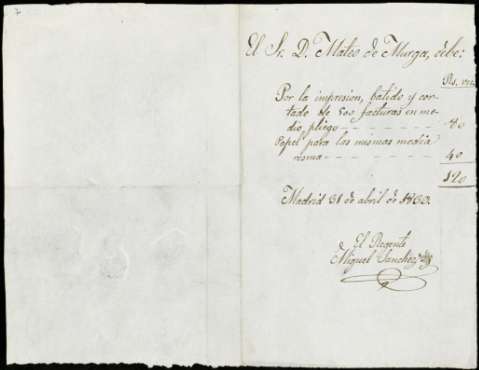 7
El Sr. D. Mateo de Murga, debe:
Rs. vn.
Por la impresion, batido y cor-
tado de 500 facturas en me-
dio pliego 80
Papel para las mismas media
resma 40
120
Madrid 31 de abril de 1860.
El Regente
Miguel Sanchez